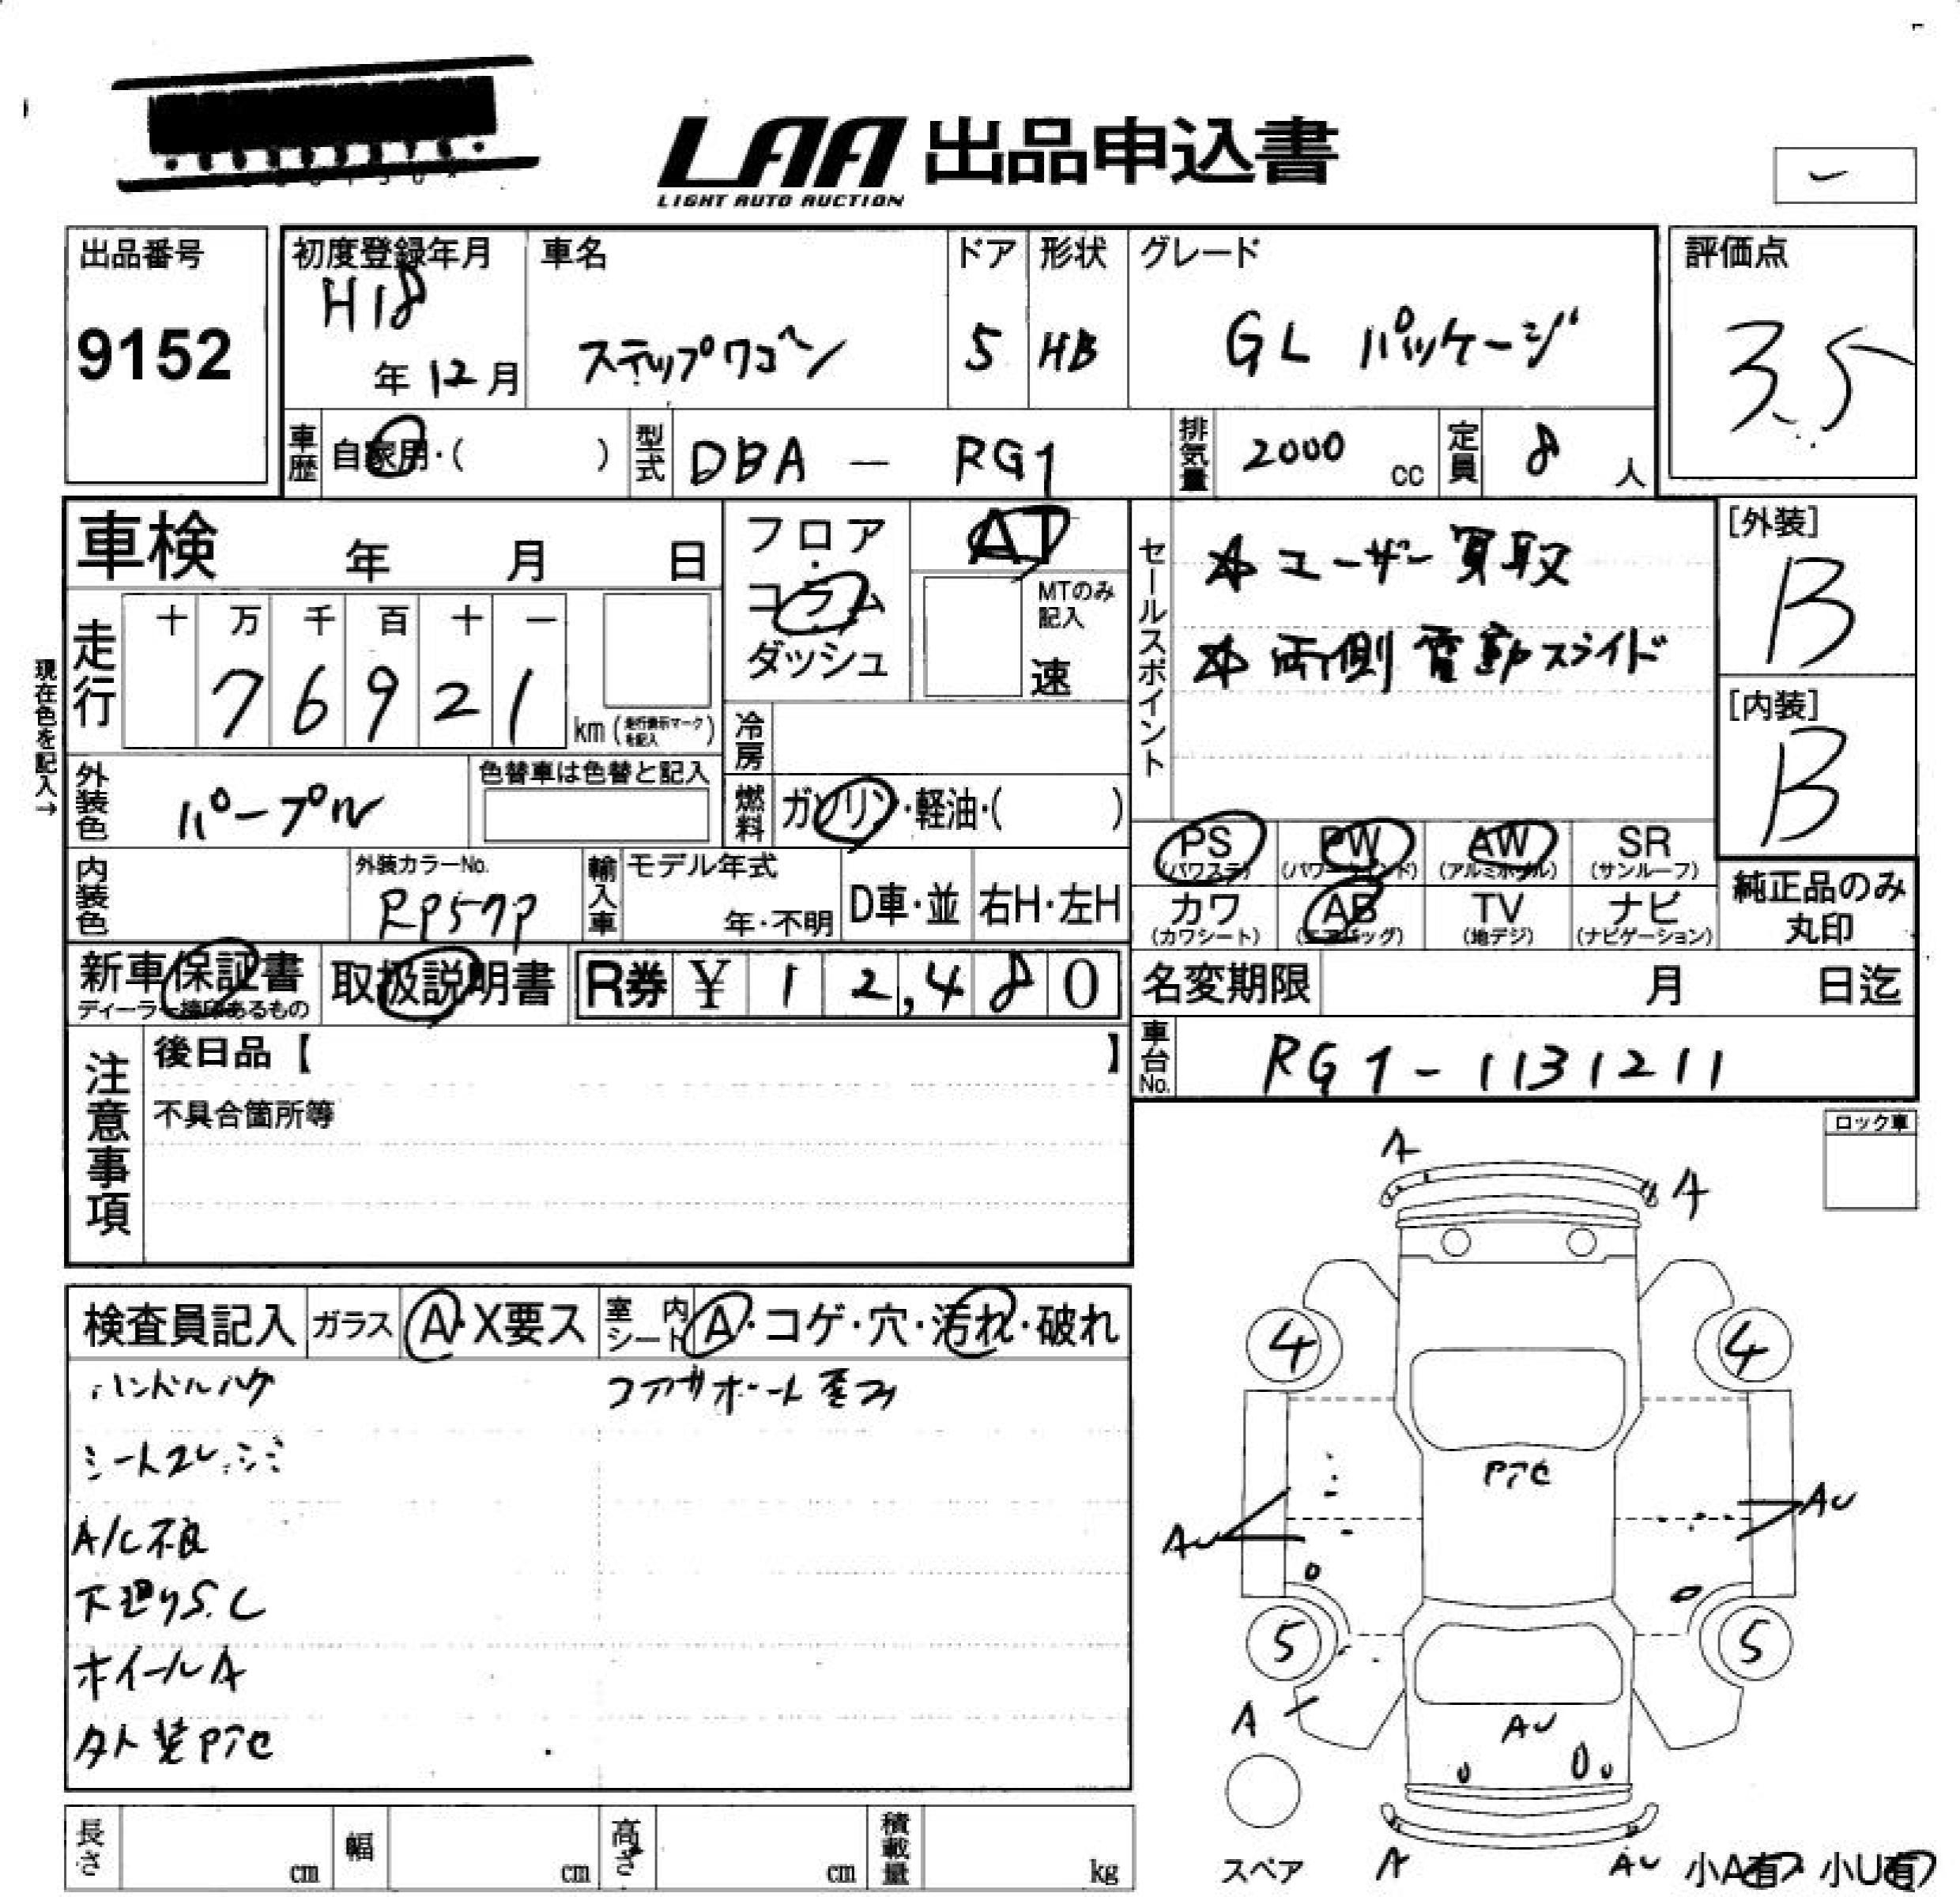 LAA 出品申込書
LIGHT AUTO AUCTION
出品番号
9152
初度登録年月
H18
年 12 月
車名
ステップワゴン
ドア
5
形状
HB
グレード
GL パッケージ
評価点
3.5
車歴
自家用・( )
型式
DBA - RG1
排気量
2000 cc
定員
8 人
車検 年 月 日
フロア
コラム
ダッシュ
AT
MTのみ記入
速
セールスポイント
☆ ユーザー買取
☆ 両側電動スライド
[外装]
B
[内装]
B
現在色を記入→
走行
十 万 千 百 十 一
7 6 9 2 1
km (走行表示マークを記入)
冷房
外装色
パープル
色替車は色替と記入
燃料
ガソリン・軽油・( )
PS (パワステ)
PW (パワーウインド)
AW (アルミホイル)
SR (サンルーフ)
カワ (カワシート)
AB (エアバッグ)
TV (地デジ)
ナビ (ナビゲーション)
純正品のみ
丸印
内装色
外装カラーNo.
RP57P
輸入車
モデル年式
年・不明
D車・並
右H・左H
新車保証書
ディーラー捺印あるもの
取扱説明書
R券 ¥ 1 2,4 8 0
名変期限 月 日迄
車台No.
RG1-1131211
注意事項
後日品【 】
不具合箇所等
ロック車
検査員記入
ガラス
A・X要ス
室内シート
A・コゲ・穴・汚れ・破れ
ハンドルハゲ
コアサポート歪み
シートスレ・シミ
A/C不良
下廻りS.C
ホイールA
外装Pアセ
A
A
4
4
Pアセ
AU
AU
5
5
A
AU
スペア
A
AU
小A有・小U有
長さ cm
幅 cm
高さ cm
積載量 kg